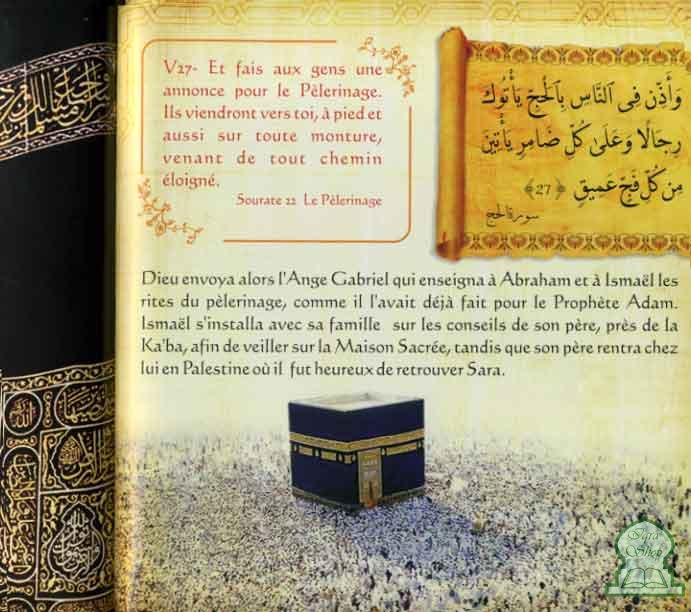 V27- Et fais aux gens une
annonce pour le Pèlerinage.
Ils viendront vers toi, à pied et
aussi sur toute monture,
venant de tout chemin
éloigné.
Sourate 22 Le Pèlerinage
وَأَذِّن فِى ٱلنَّاسِ بِٱلْحَجِّ يَأْتُوكَ
رِجَالًا وَعَلَىٰ كُلِّ ضَامِرٍ يَأْتِينَ
مِن كُلِّ فَجٍّ عَمِيقٍ ﴿27﴾
سورة الحج
Dieu envoya alors l'Ange Gabriel qui enseigna à Abraham et à Ismaël les
rites du pèlerinage, comme il l'avait déjà fait pour le Prophète Adam.
Ismaël s'installa avec sa famille sur les conseils de son père, près de la
Ka'ba, afin de veiller sur la Maison Sacrée, tandis que son père rentra chez
lui en Palestine où il fut heureux de retrouver Sara.
Iqra
Shop